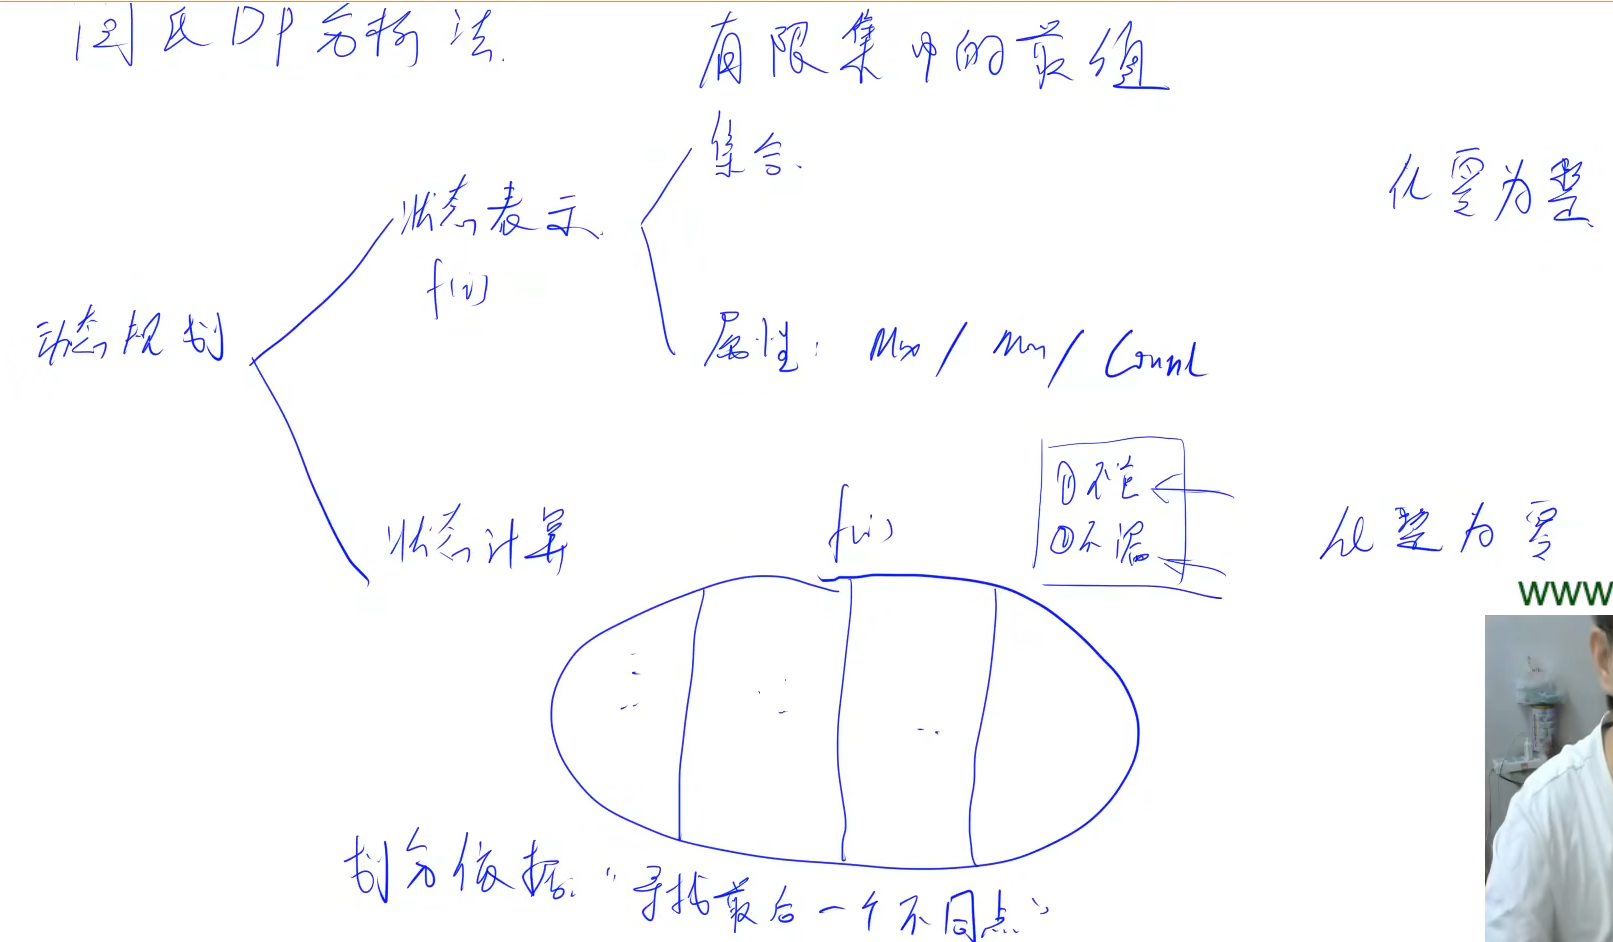 闫氏DP分析法
有限集中的最值
集合
化零为整
状态表示
f(i)
动态规划
属性: Max / Min / Count
f(i)
①不重
②不漏
状态计算
化整为零
www
划分依据: “寻找最后一个不同点”